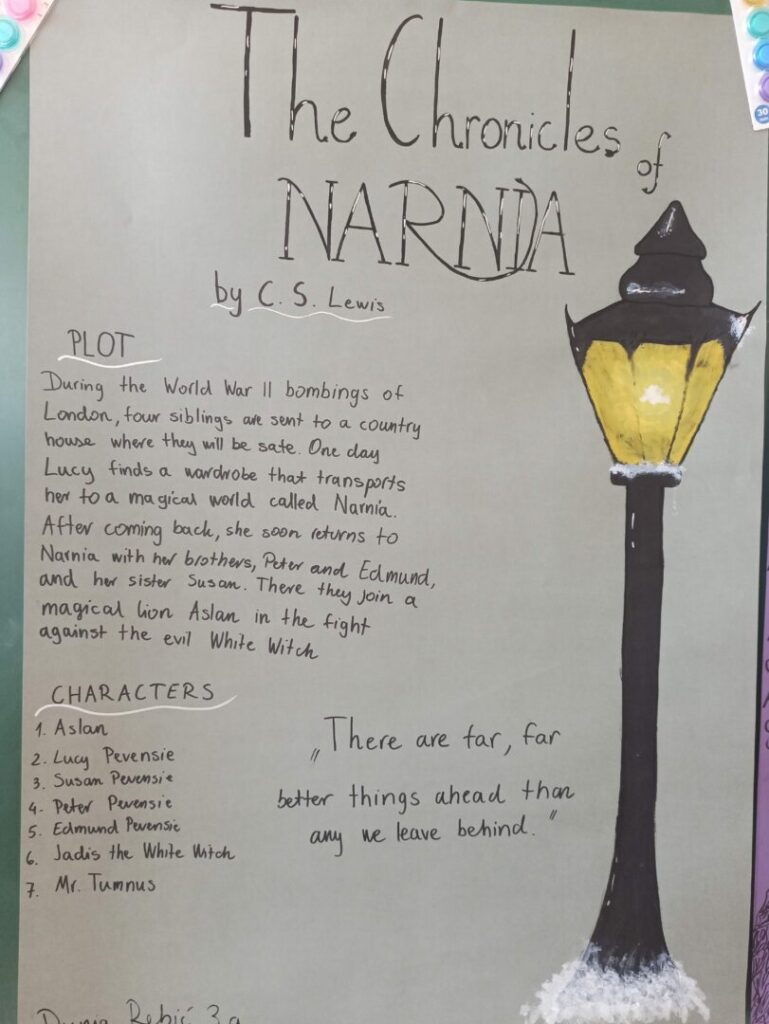 The Chronicles of
NARNIA
by C. S. Lewis
PLOT
During the World War II bombings of
London, four siblings are sent to a country
house where they will be safe. One day
Lucy finds a wardrobe that transports
her to a magical world called Narnia.
After coming back, she soon returns to
Narnia with her brothers, Peter and Edmund,
and her sister Susan. There they join a
magical lion Aslan in the fight
against the evil White Witch
CHARACTERS
1. Aslan
2. Lucy Pevensie
3. Susan Pevensie
4. Peter Pevensie
5. Edmund Pevensie
6. Jadis the White Witch
7. Mr. Tumnus
„There are far, far
better things ahead than
any we leave behind.”
Rebić 3.a
30